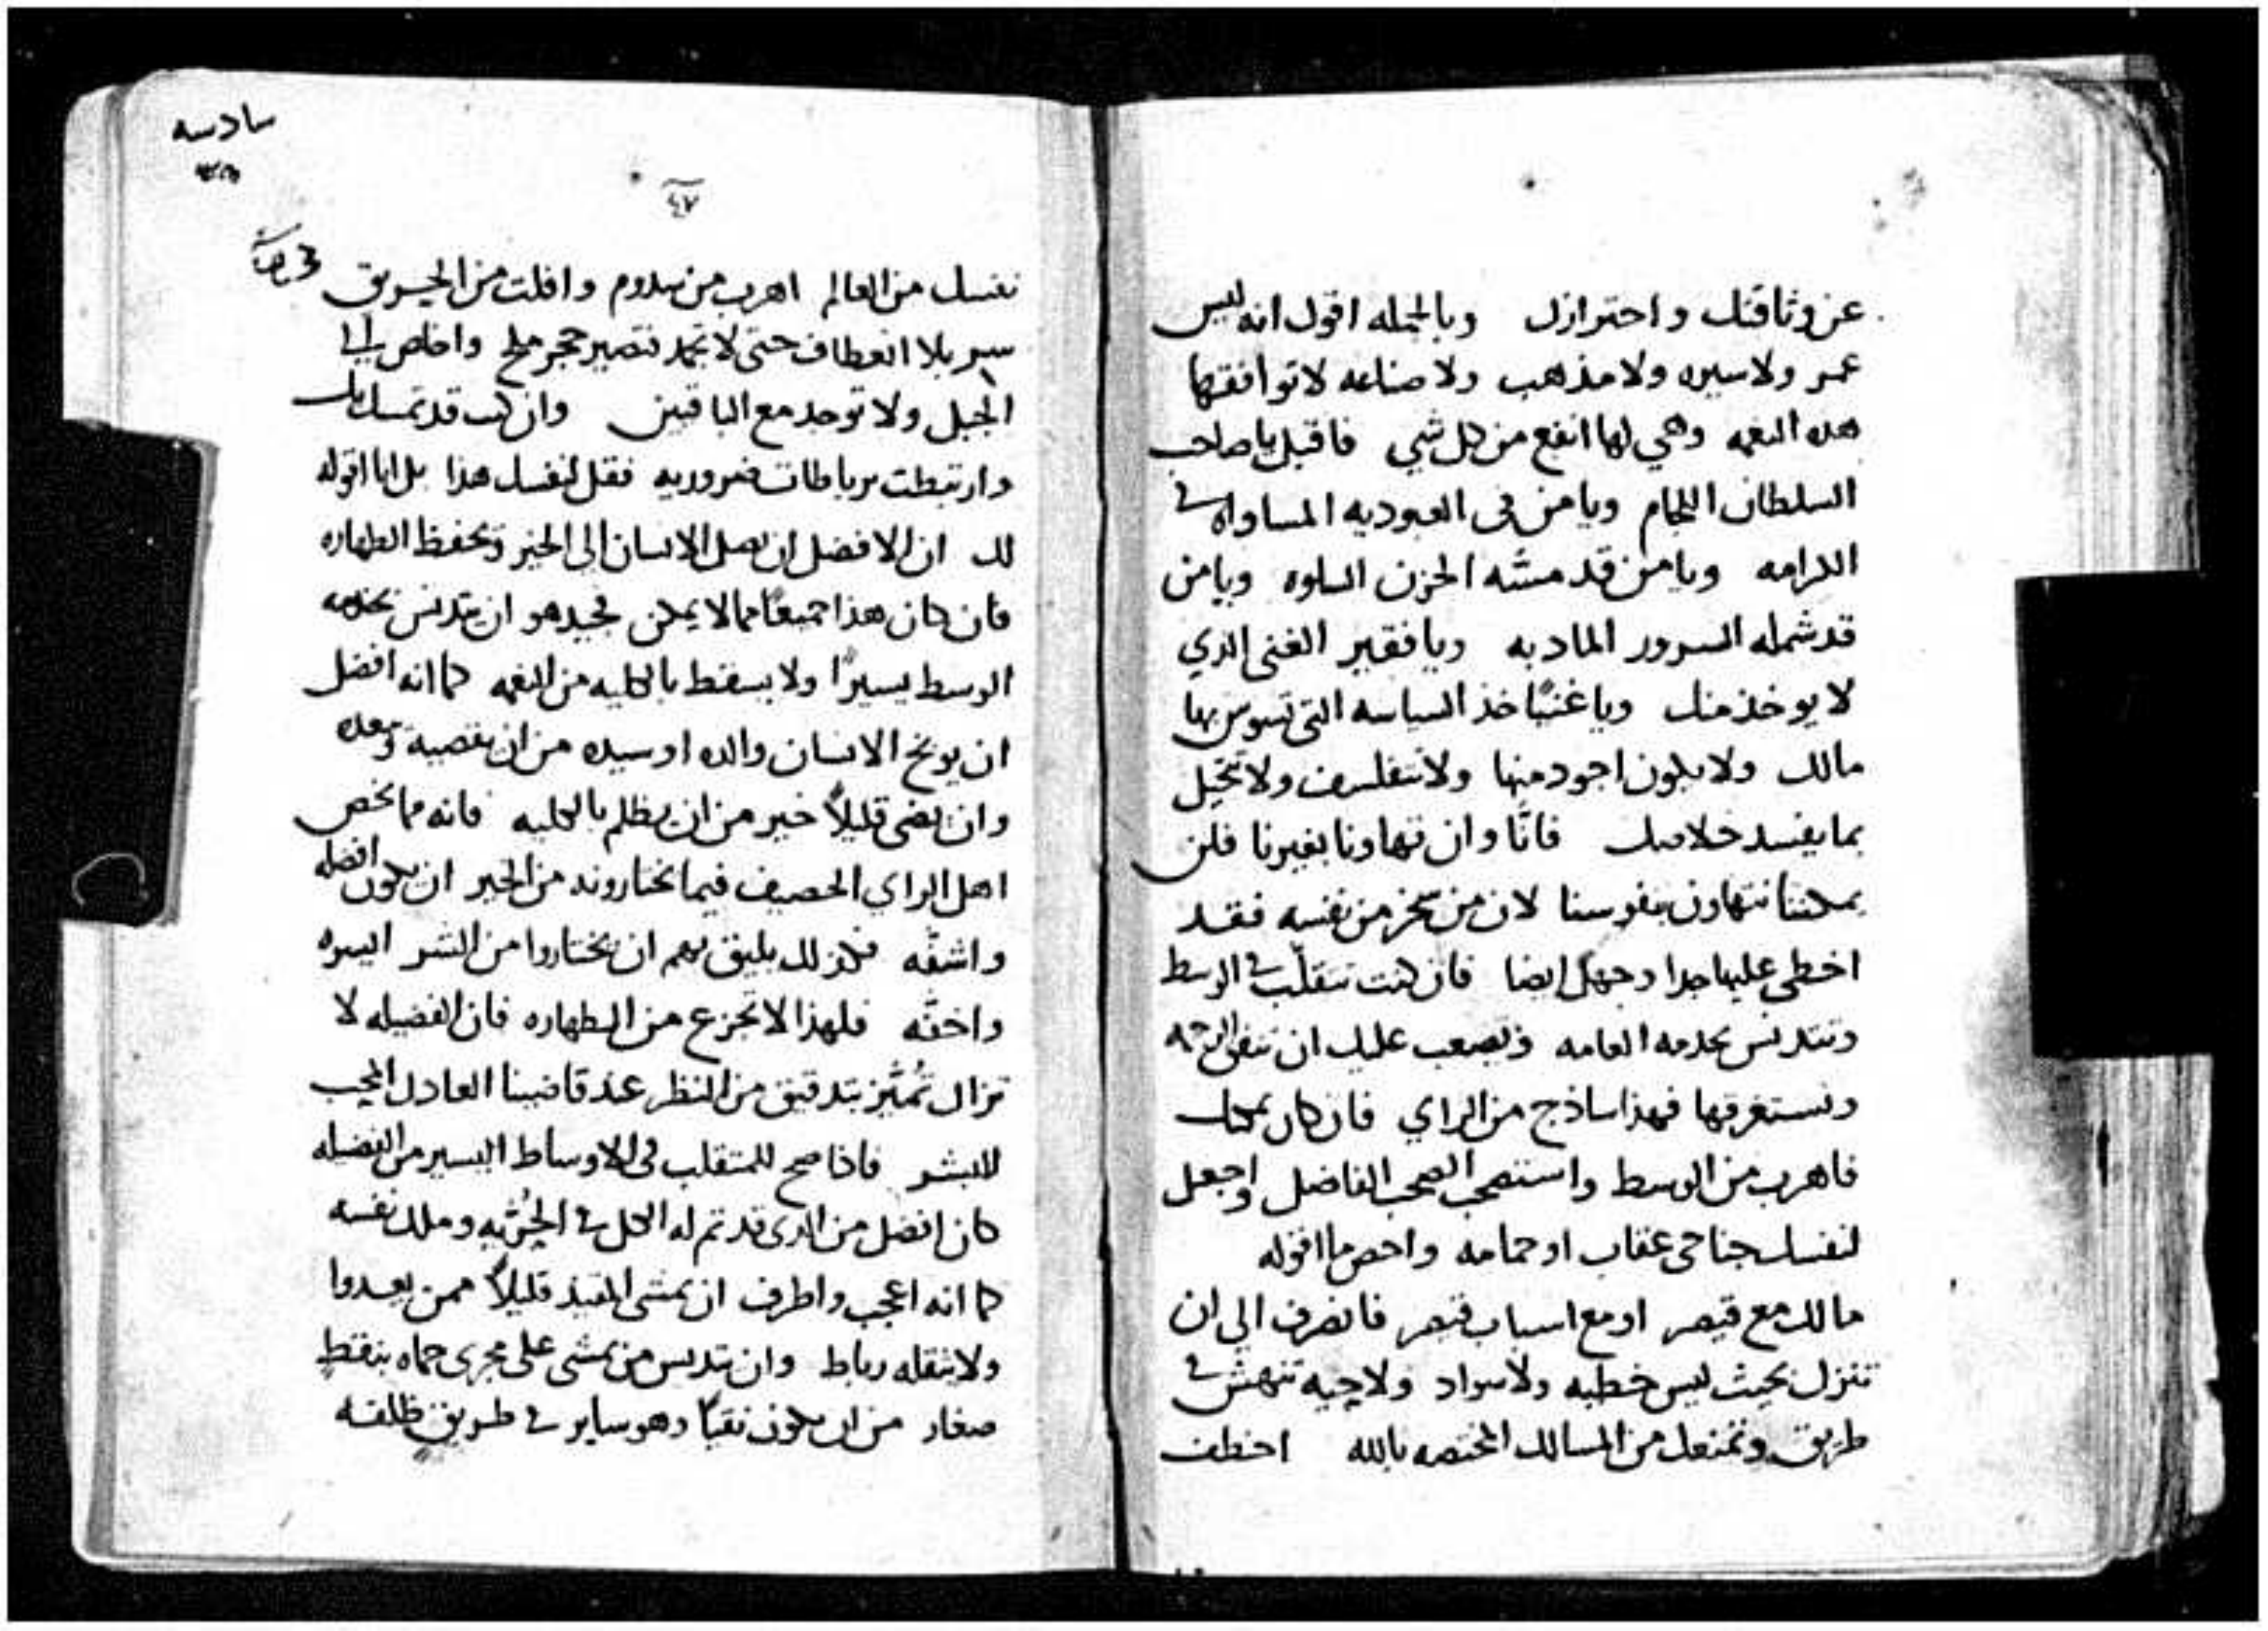 عن وثاقتك واحترازك وبالجمله اقول انه ليس
عمر ولا سيره ولا مذهب ولا صناعه لا توافقها
هده النعمه وهي لها انفع من كل شي فاقبل يا صاحب
السلطان اللجام ويا من في العبوديه المساواه في
الكرامه ويا من قد مسّه الحزن السلوه ويا من
قد شمله السرور المادبه ويا فقير الغنى الدي
لا يوخذ منك ويا غنيًا خذ السياسه التي تسوس بها
مالك ولا يكون اجود منها ولا تتفلسف ولا تتخيل
بما يفسد خلاصك فانّا وان تهاونا بغيرنا فلن
يمكننا نتهاون بنفوسنا لان من سخر من نفسه فقد
اخطى عليها جدا وجهل ايضا فان كنت تتقلّب في الوسط
وتتدنس بخدمه العامه ويصعب عليك ان تنفي الرحمه
وتستغرقها فهذا ساذج من الراي فان كان يمكنك
فاهرب من الوسط واستصحب الصحب الفاضل واجعل
لنفسك جناحي عقاب او حمامه واحص ما اقوله
مالك مع قيصر او مع اسباب قيصر فانصرف الى ان
تنزل بحيث ليس خطيه ولا سواد ولا حيه تنهش في
طريق وتمنعك من المسالك المختصه بالله اخطف
سادسه
٤٧
نفسك من العالم اهرب من سدوم وافلت من الحريق
سر بلا انعطاف حتى لا تجمد فتصير حجر ملح واخلص الى
الجبل ولا توجد مع الباقين وان كنت قد تمسك بك
وارتبطت برباطات ضروريه فقل لنفسك هذا بل انا اقوله
لك ان الافضل ان يصل الانسان الى الخير ويحفظ الطهاره
فان كان هذا جميعًا مما لا يمكن فجيد هو ان يتدنس بخدمه
الوسط يسيرًا ولا يسقط بالكليه من النعمه كما انه افضل
ان يوبخ الانسان والده او سيده من ان يقصيه ويبعده
وان يضي قليلاً خير من ان يظلم بالكليه فانه مما يخص
اهل الراي الحصيف فيما يختارونه من الخير ان يكون افضله
واشفّه فكذلك يليق بهم ان يختاروا من الشر ايسره
واخفّه فلهذا لا تجزع من الطهاره فان الفضيله لا
تزال تُميَّز بتدقيق من النظر عند قاضينا العادل المحب
للبشر فاذا صح للمتقلب في الاوساط اليسير من الفضيله
كان افضل من الدي قد تم له الكل في الحُرّيه وملك نفسه
كما انه اعجب واطرف ان يمشي المقيد قليلاً ممن يعدوا
ولا يثقله رباط وان يتدنس من يمشي على مجرى حماه بنقط
صغار من ان يكون نقيًا وهو ساير في طريق نظيفه